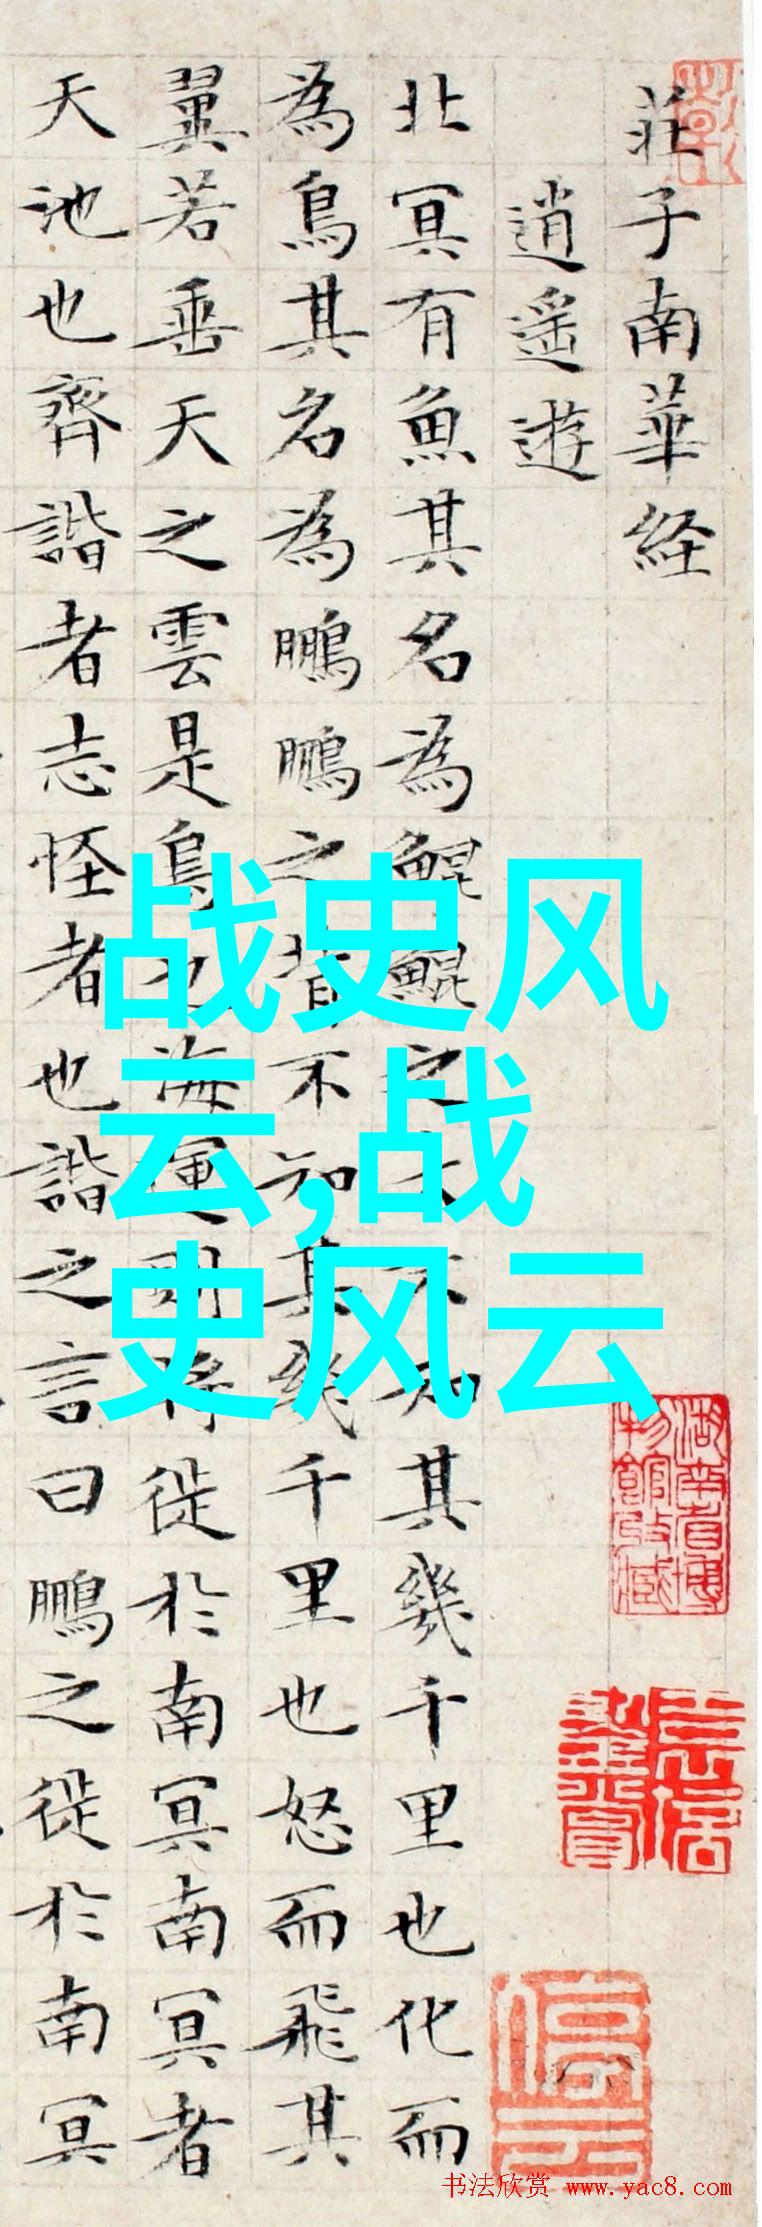 莊子南華経
逍遥遊
北冥有魚其名為鯤鯤之大不知其幾千里也化而
為鳥其名為鵬鵬之背不知其幾千里也怒而飛其
翼若垂天之雲是鳥也海運則将徙於南冥南冥者
天池也齊諧者志怪者也諧之言曰鵬之徙於南冥
战史风
云,战
史风云
湖南省博
物館收藏
停云
书法欣赏 www.yac8.com